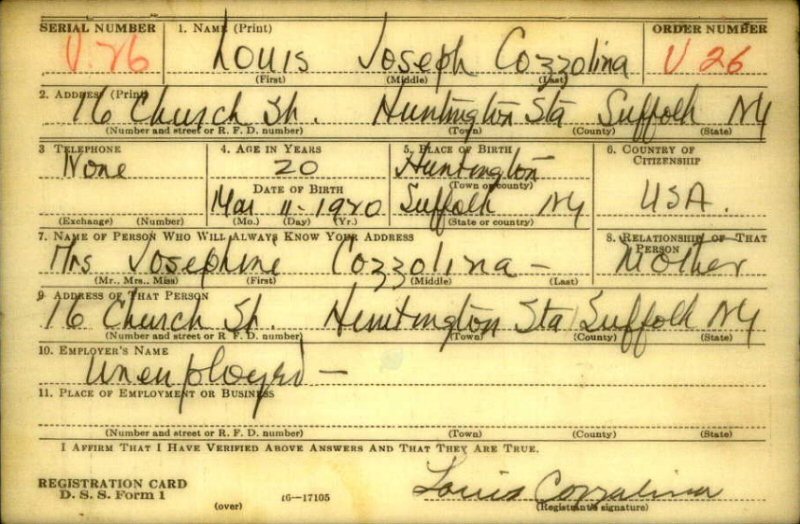 SERIAL NUMBER 1. NAME (Print) ORDER NUMBER
U. 26 Louis Joseph Cozzolina U 26
(First) (Middle) (Last)
2. ADDRESS (Print)
16 Church St. Huntington Sta Suffolk NY
(Number and street or R. F. D. number) (Town) (County) (State)
3 TELEPHONE 4. AGE IN YEARS 5. PLACE OF BIRTH 6. COUNTRY OF CITIZENSHIP
None 20 Huntington
(Town or county)
DATE OF BIRTH
Mar 11-1920 Suffolk NY USA.
(Exchange) (Number) (Mo.) (Day) (Yr.) (State or country)
7. NAME OF PERSON WHO WILL ALWAYS KNOW YOUR ADDRESS 8. RELATIONSHIP OF THAT PERSON
Mrs Josephine Cozzolina - Mother
(Mr., Mrs., Miss) (First) (Middle) (Last)
9 ADDRESS OF THAT PERSON
16 Church St. Huntington Sta Suffolk NY
(Number and street or R. F. D. number) (Town) (County) (State)
10. EMPLOYER'S NAME
Unemployed -
11. PLACE OF EMPLOYMENT OR BUSINESS
(Number and street or R. F. D. number) (Town) (County) (State)
I AFFIRM THAT I HAVE VERIFIED ABOVE ANSWERS AND THAT THEY ARE TRUE.
REGISTRATION CARD
D. S. S. Form 1 Louis Cozzalina
(over) 16-17105 (Registrant's signature)